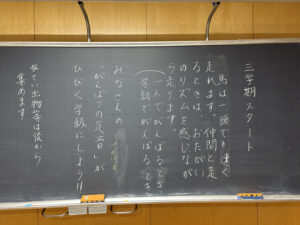 三学期スタート
馬は一頭でも速く
走れます。仲間と走
るときは、おたがい
のリズムを感じなが
ら走ります。
一人でがんばるとき
学級でがんばるとき
みなさんの
「がんばりの足音」が
ひびく学級にしよう!!
提出物等は後から
集めます